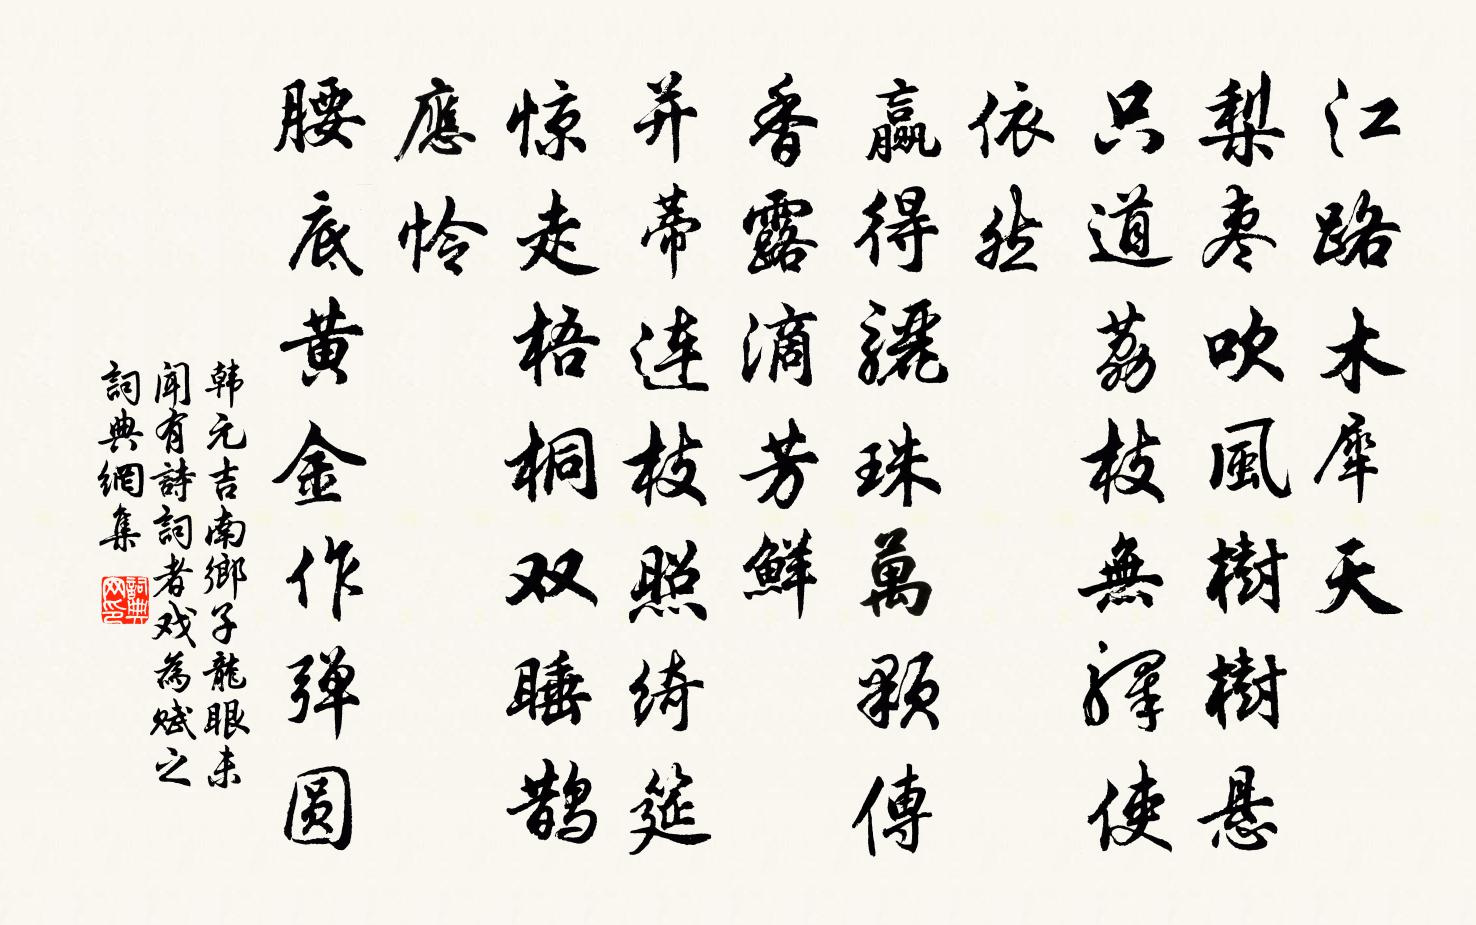 江路木犀天
梨枣吹風樹樹悬
只道荔枝無驛使
依然
赢得驪珠萬颗傳
香露滴芳鮮
并蒂连枝照绮筵
惊走梧桐双睡鹊
應怜
腰底黄金作弹圆
韩元吉南鄉子龍眼未
闻有詩詞者戏為赋之
詞典網集
詞典網印